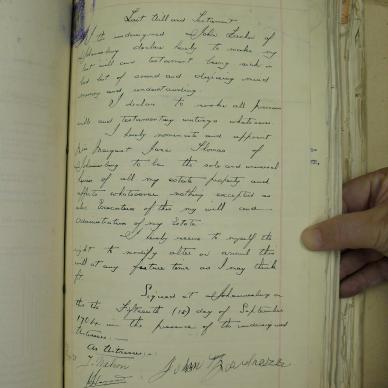 Last Will and Testament
I the undersigned John of
Johannesburg declare hereby to make my
last will and testament being sick in
bed but of sound and disposing mind
memory and understanding.
I declare to revoke all previous
wills and testamentary writings whatsoever.
I hereby nominate and appoint
Margaret Jane Thomas of
Johannesburg to be the sole and universal
of all my estate property and
effects whatsoever nothing excepted as
also Executrix of this my will and
Administration of my Estate
I hereby reserve to myself the
right to modify alter or annul this
will at any future time as I may think
fit
Signed at Johannesburg on
this the Fifteenth (15) day of September
in the presence of the undersigned
Witnesses:-
As Witnesses:-
John